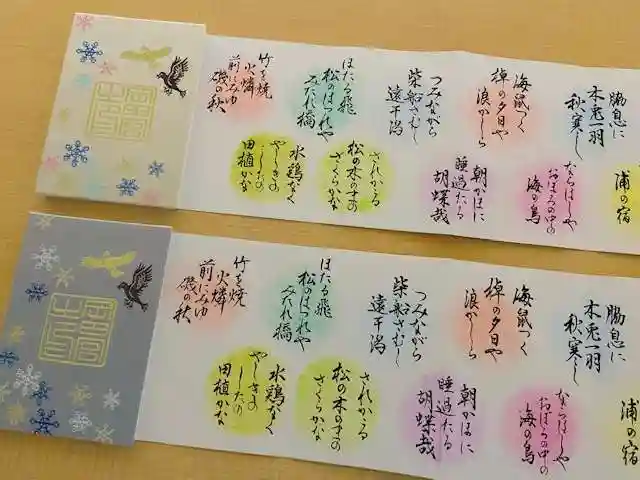 脇息に
木兎一羽
秋寒し
浦の宿
海鼠つく
棹の夕日や
浪かしら
ならはしや
おほろの中の
海の鳥
つみながら
柴船さむし
遠干潟
朝かほに
睡過たる
胡蝶哉
ほたる飛
松のはつれや
みたれ橋
されかゝる
松の木のまの
さくらかな
竹を焼
火燐
前にみゆ
磯の秋
水鶏なく
やしきの
したの
田植かな
脇息に
木兎一羽
秋寒し
浦の宿
海鼠つく
棹の夕日や
浪かしら
ならはしや
おほろの中の
海の鳥
つみながら
柴船さむし
遠干潟
朝かほに
睡過たる
胡蝶哉
ほたる飛
松のはつれや
みたれ橋
されかゝる
松の木のまの
さくらかな
竹を焼
火燐
前にみゆ
磯の秋
水鶏なく
やしきの
したの
田植かな